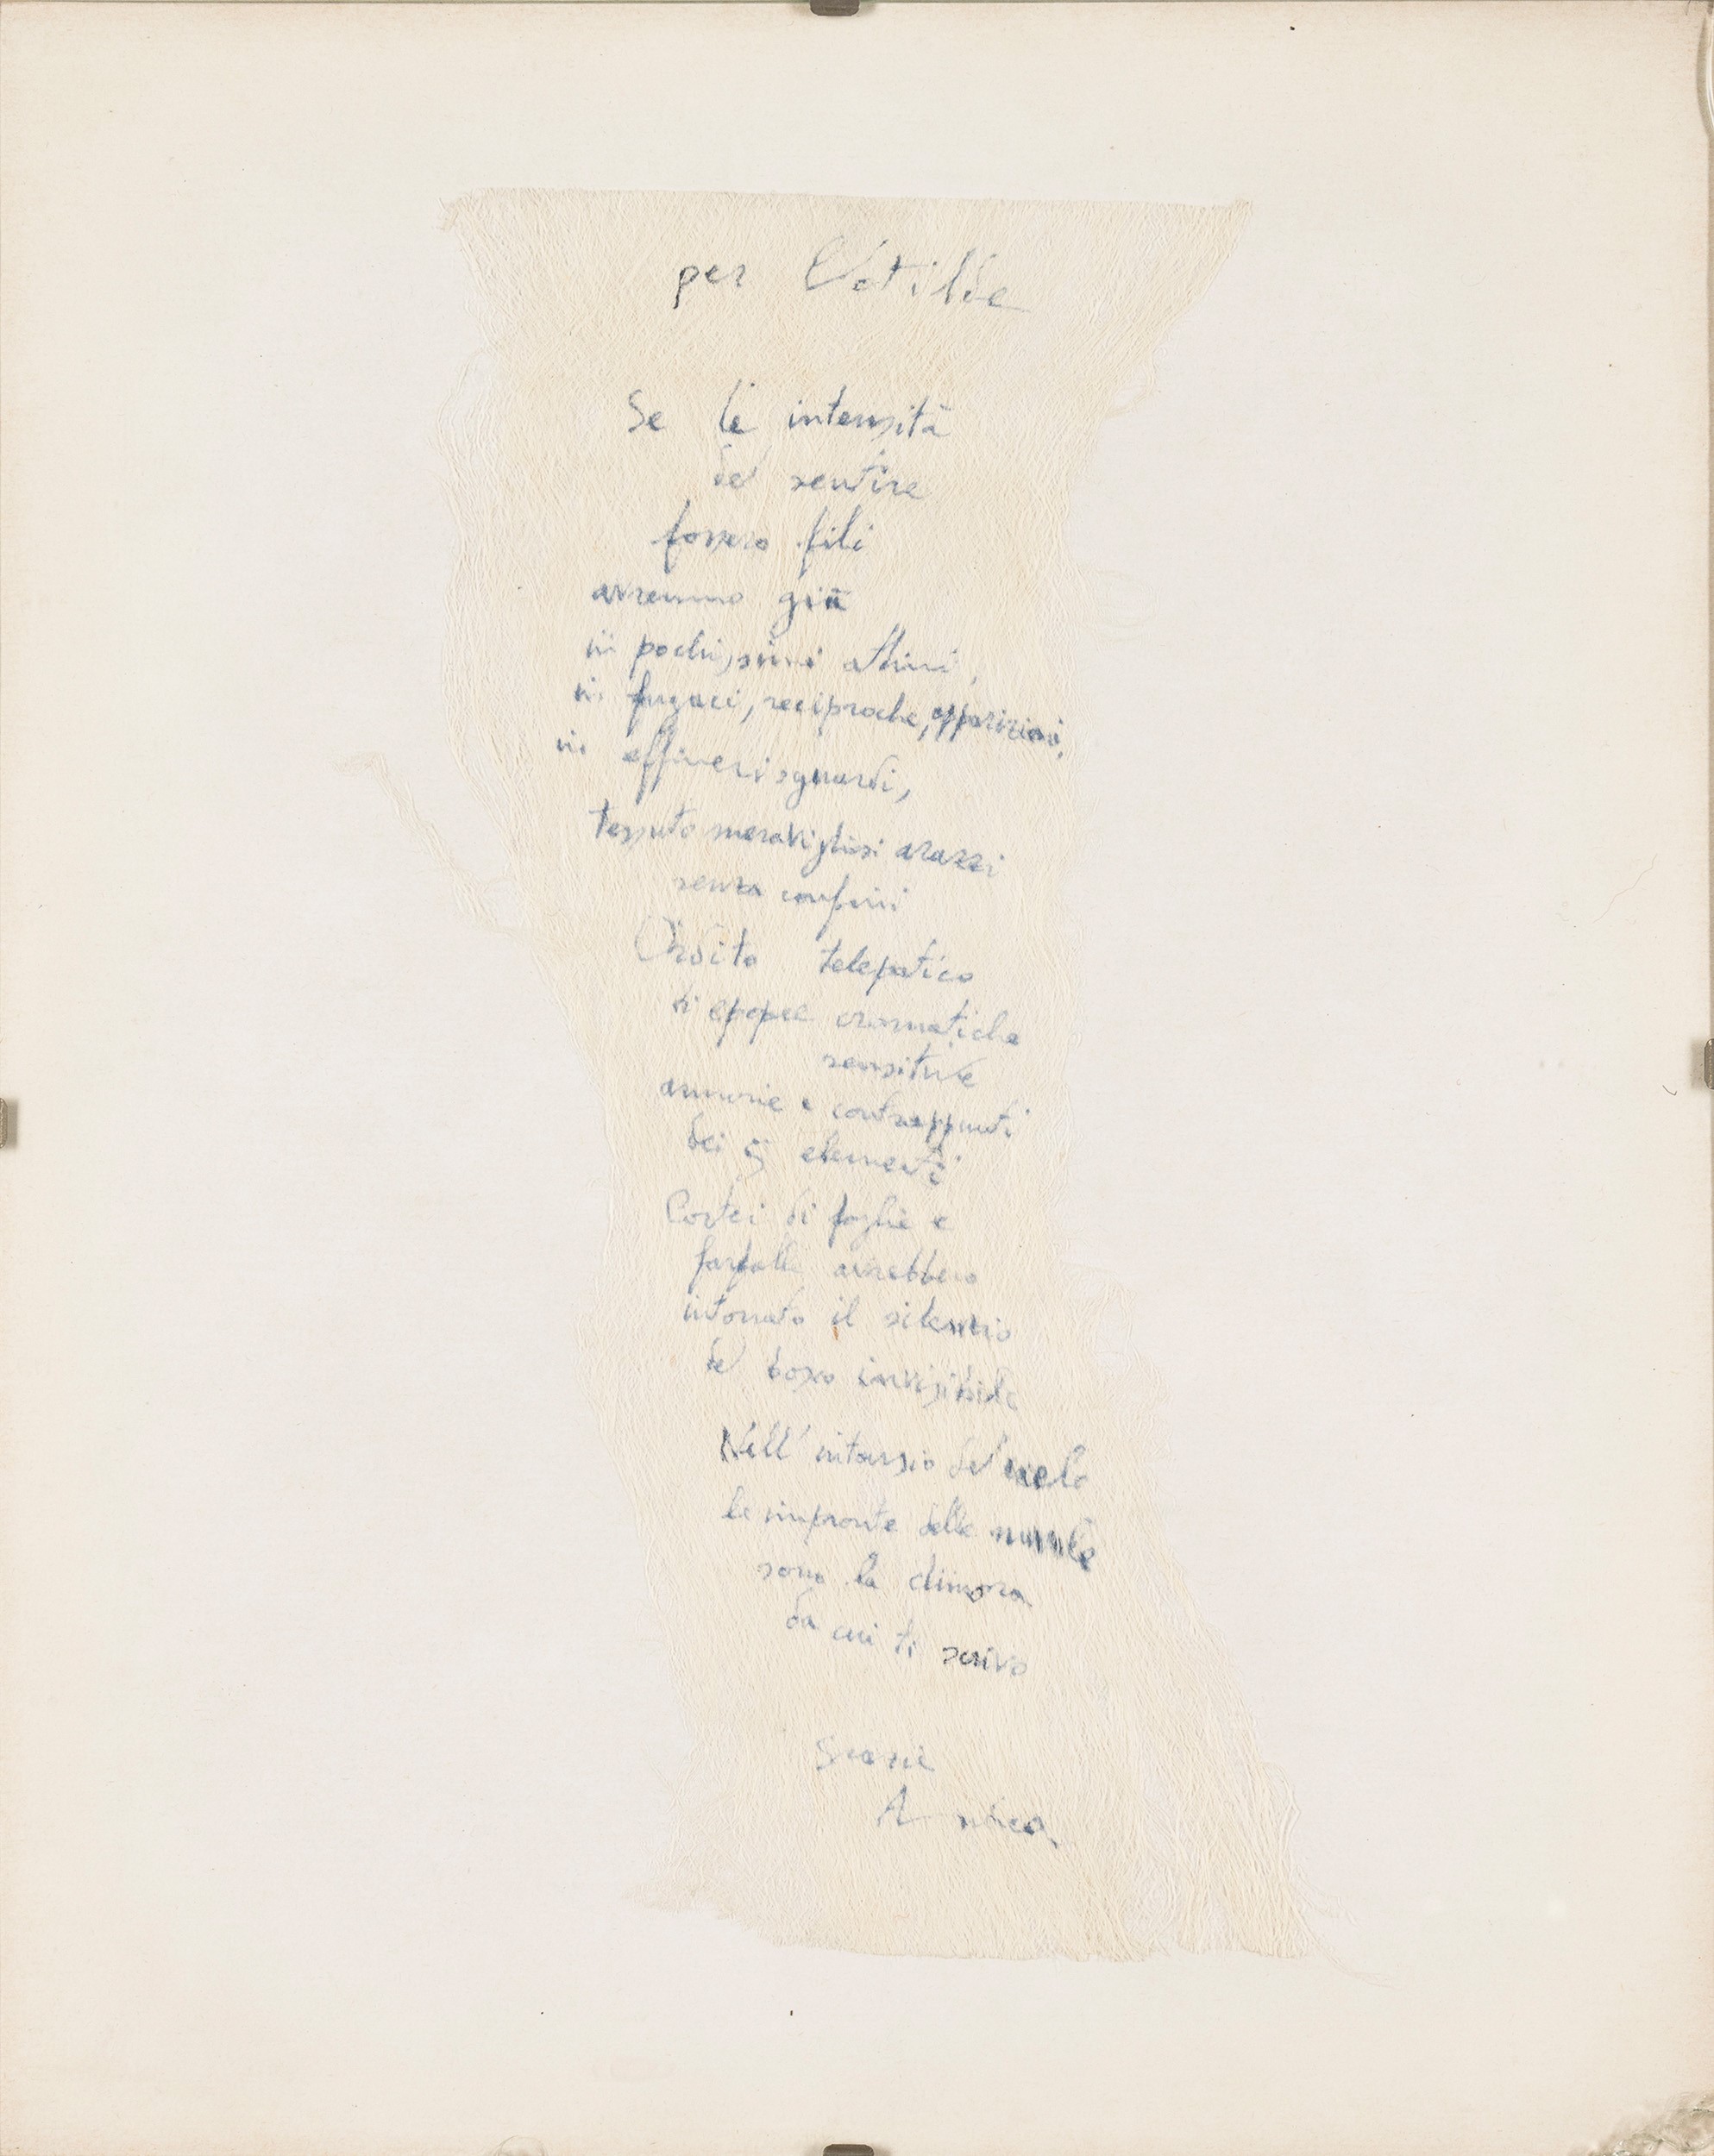 per
Se le intensità
del sentire
fossero fili
avremmo già
in pochissimi attimi,
in fugaci, reciproche, apparizioni,
in effimeri sguardi,
tessuto meravigliosi arazzi
senza confini
Ordito telepatico
di epopee cromatiche
sensitive
armonie e contrappunti
dei 5 elementi
Cortei di foglie e
farfalle avrebbero
intonato il silenzio
del bosco invisibile
Nell' intarsio del cielo
le impronte delle nuvole
sono la dimora
da cui ti scrivo
grazie
A